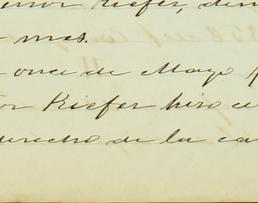 Kiefer,
mas.
once de Mayo
Kiefer hizo
derecho de la